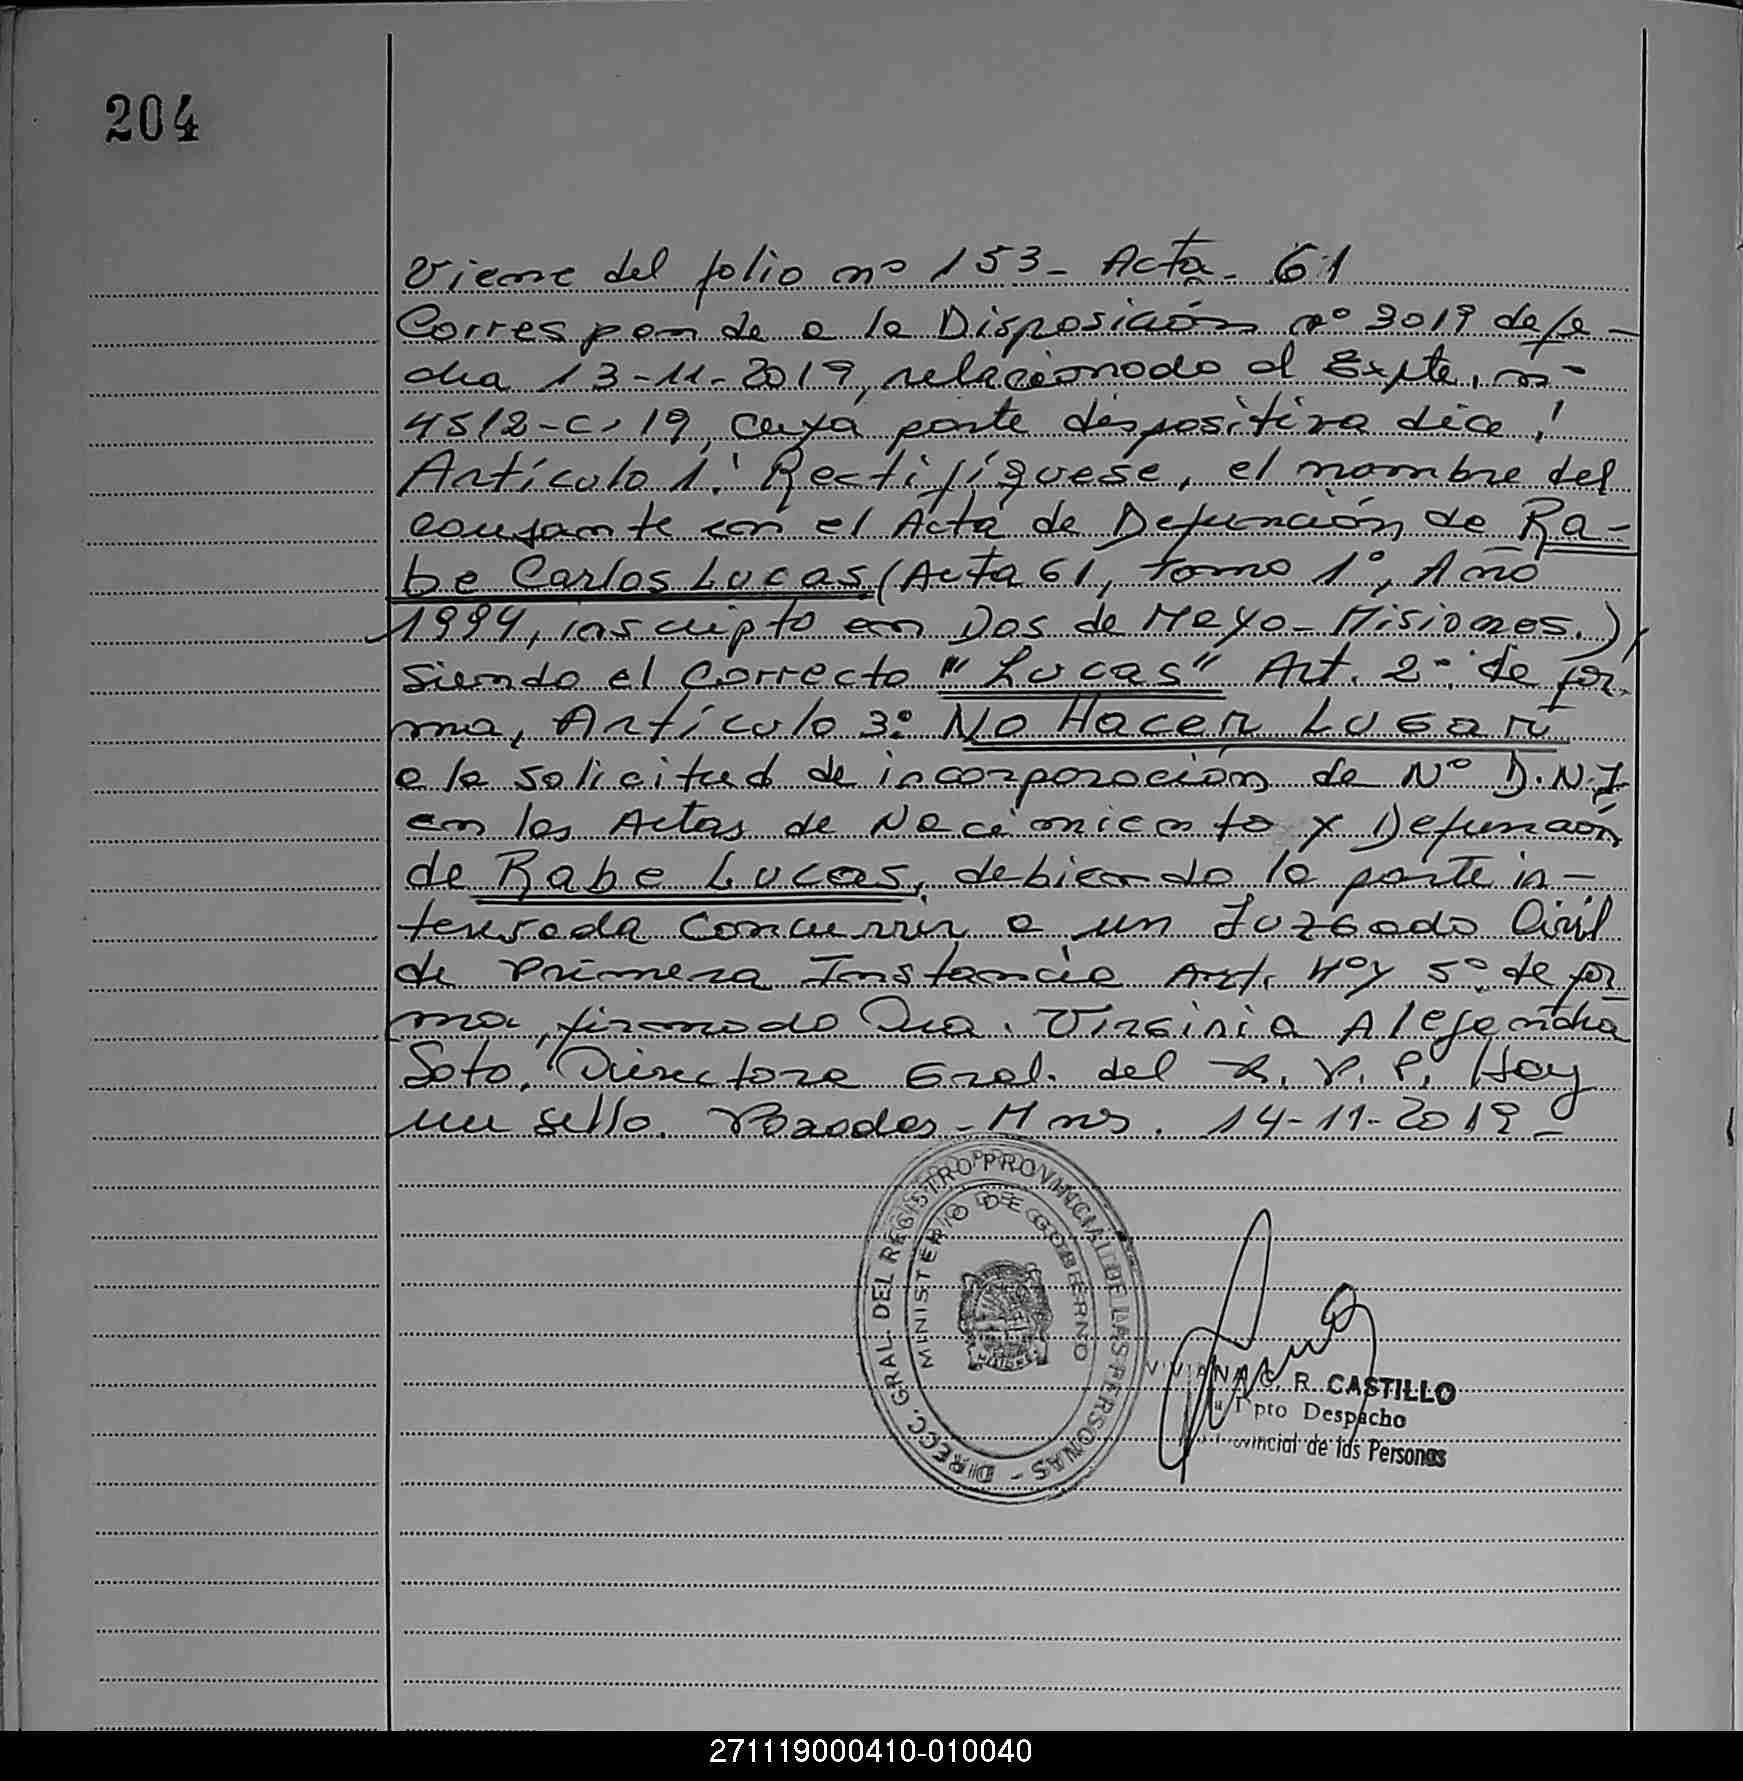 204
Viene del folio nº 153 - Acta - 61
Corresponde a la Disposición nº 3019 de fe-
cha 13-11-2019, relacionado al Expte, nº
4512-C-19, cuya parte dispositiva dice:
Artículo 1: Rectifíquese, el nombre del
causante en el Acta de Defunción, de Ra-
be Carlos Lucas (Acta 61, tomo 1º, Año
1994, inscripto en Dos de Mayo - Misiones.)
siendo el correcto "Lucas" Art. 2º: de for-
ma, Artículo 3º: No Hacer Lugar
a la solicitud de incorporación de Nº D.N.I
en las Actas de Nacimiento y Defunción
de Rabe Lucas, debiendo la parte in-
teresada concurrir a un Juzgado Civil
de Primera Instancia Art. 4º y 5º: de for
ma, firmado Dra. Virginia Alejandra
Soto, Directora Gral. del R. P. P. Hay
un sello. Posadas - Mnes. 14-11-2019 -
DIRECC. GRAL. DEL REGISTRO PROVINCIAL DE LAS PERSONAS -
MINISTERIO DE GOBERNO
VIVIANA G. R. CASTILLO
Dpto Despacho
Provincial de las Personas
271119000410-010040